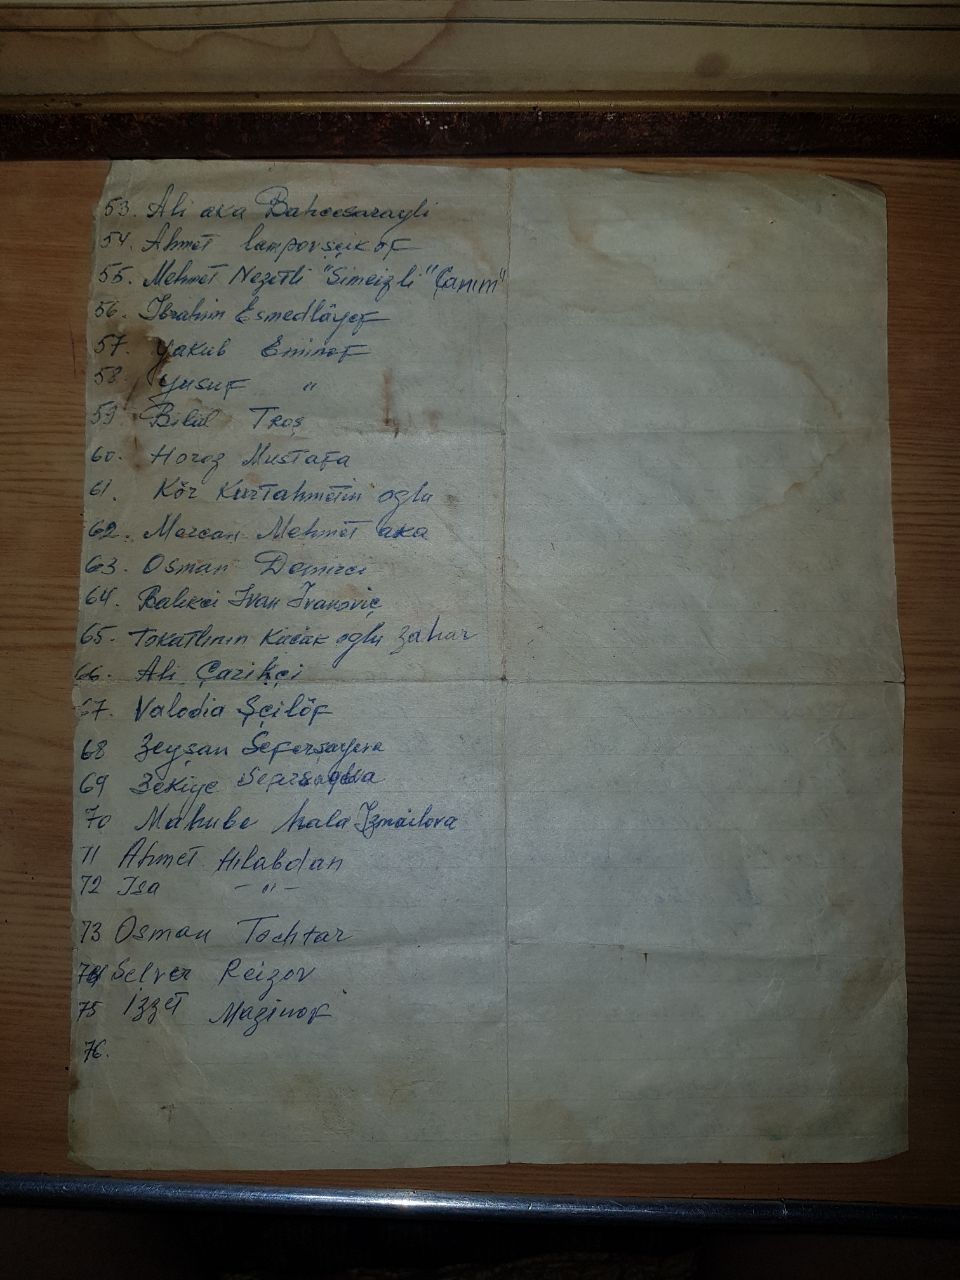 53. Ali aka Bahcesarayli
54. Ahmet lamporşçikof
55. Mehmet Nezetli "Simeizli" "Çanım"
56. İbrahim Esmedläyef
57. Yakub Eminof
58 Yusuf "
59 Bilâl Troş
60. Horoz Mustafa
61. Kör Kurtahmetin oglu
62. Mercan Mehmet aka
63. Osman Demirci
64. Balıkci İvan İvanoviç
65. Tokatlının Kücük oglu Zahar
66. Ali Çarikçi
67. Valodia Şçilöf
68 Zeyşan Seferşayeva
69 Zekiye
70 Mahube Mala İzmailova
71 Ahmet Hılabdan
72 İsa - " -
73 Osman Tochtar
74 Selver Reizov
75 İzzet Mazinof
76.